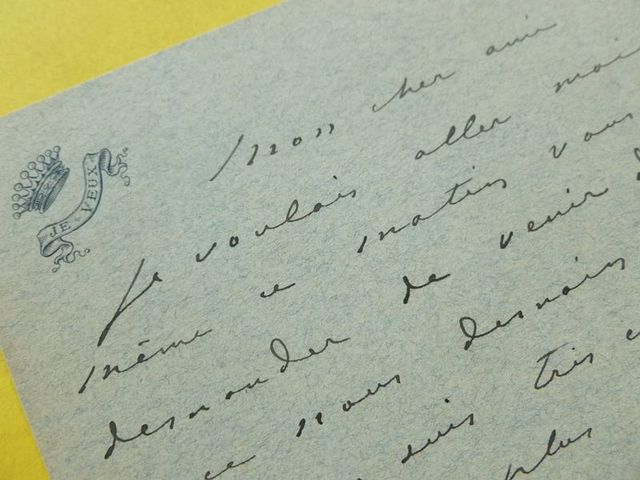 JE VEUX
Mon cher ami
Je voulais aller moi
même ce matin vous
demander de venir d
ce nous
suis très
plus